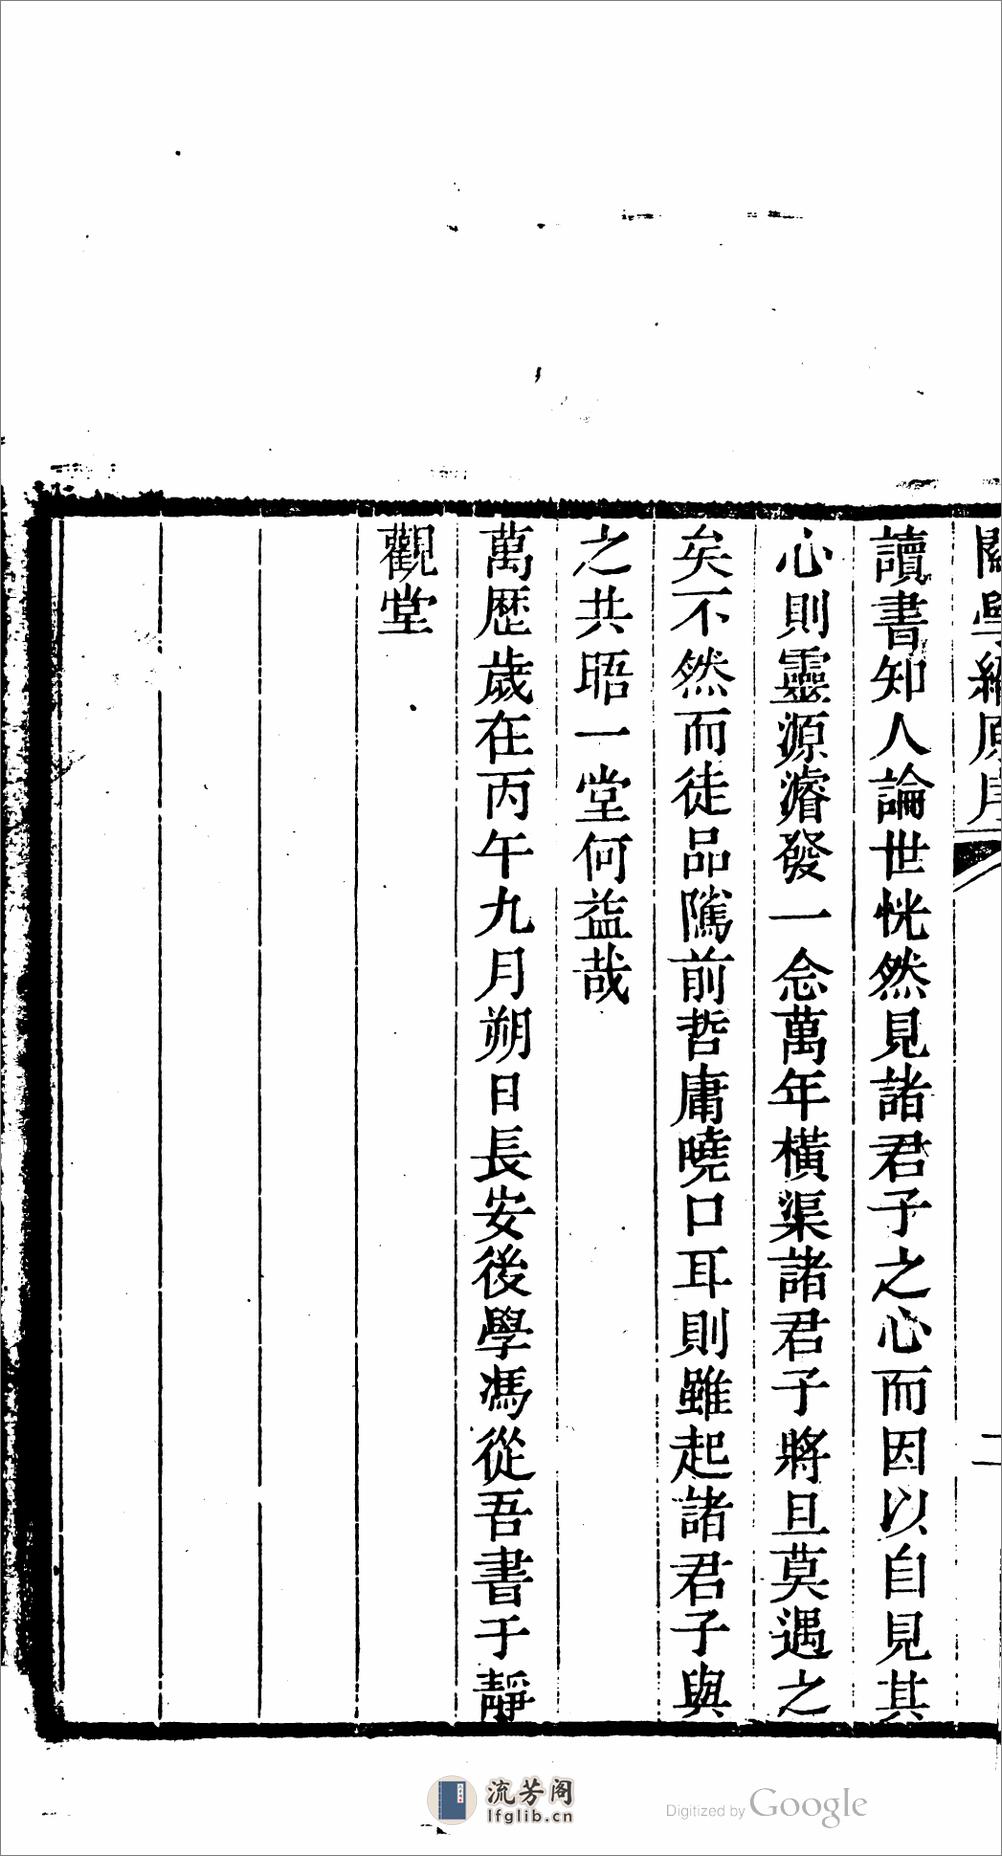 關學編原序
二
讀書知人論世恍然見諸君子之心而因以自見其
心則靈源濬發一念萬年橫渠諸君子將旦莫遇之
矣不然而徒品隲前哲庸嘵口耳則雖起諸君子與
之共晤一堂何益哉
萬歷歲在丙午九月朔日長安後學馮從吾書于靜
觀堂
流芳阁
lfglib.cn
Digitized by Google